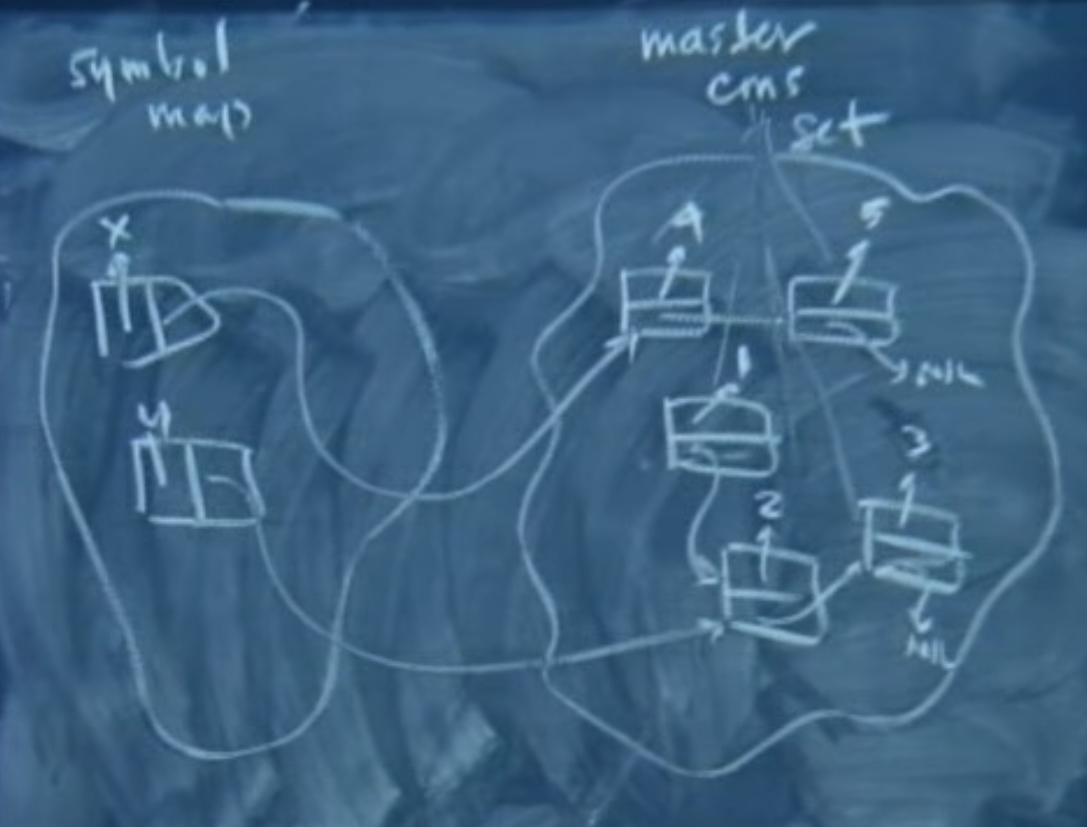 symbol
map
master
cons
set
x
A
5
null
1
y
3
2
null